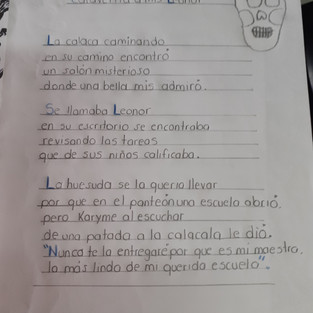 La calaca caminando
en su camino encontró
un salón misterioso
donde una bella mis admiró.
Se llamaba Leonor
en su escritorio se encontraba
revisando las tareas
que de sus niñas calificaba.
La huesuda se la quería llevar
por que en el panteón una escuela abrió.
pero Karyme al escuchar
de una patada a la calacala le dió.
"Nunca te la entregaré por que es mi maestra,
la más linda de mi querida escuela".